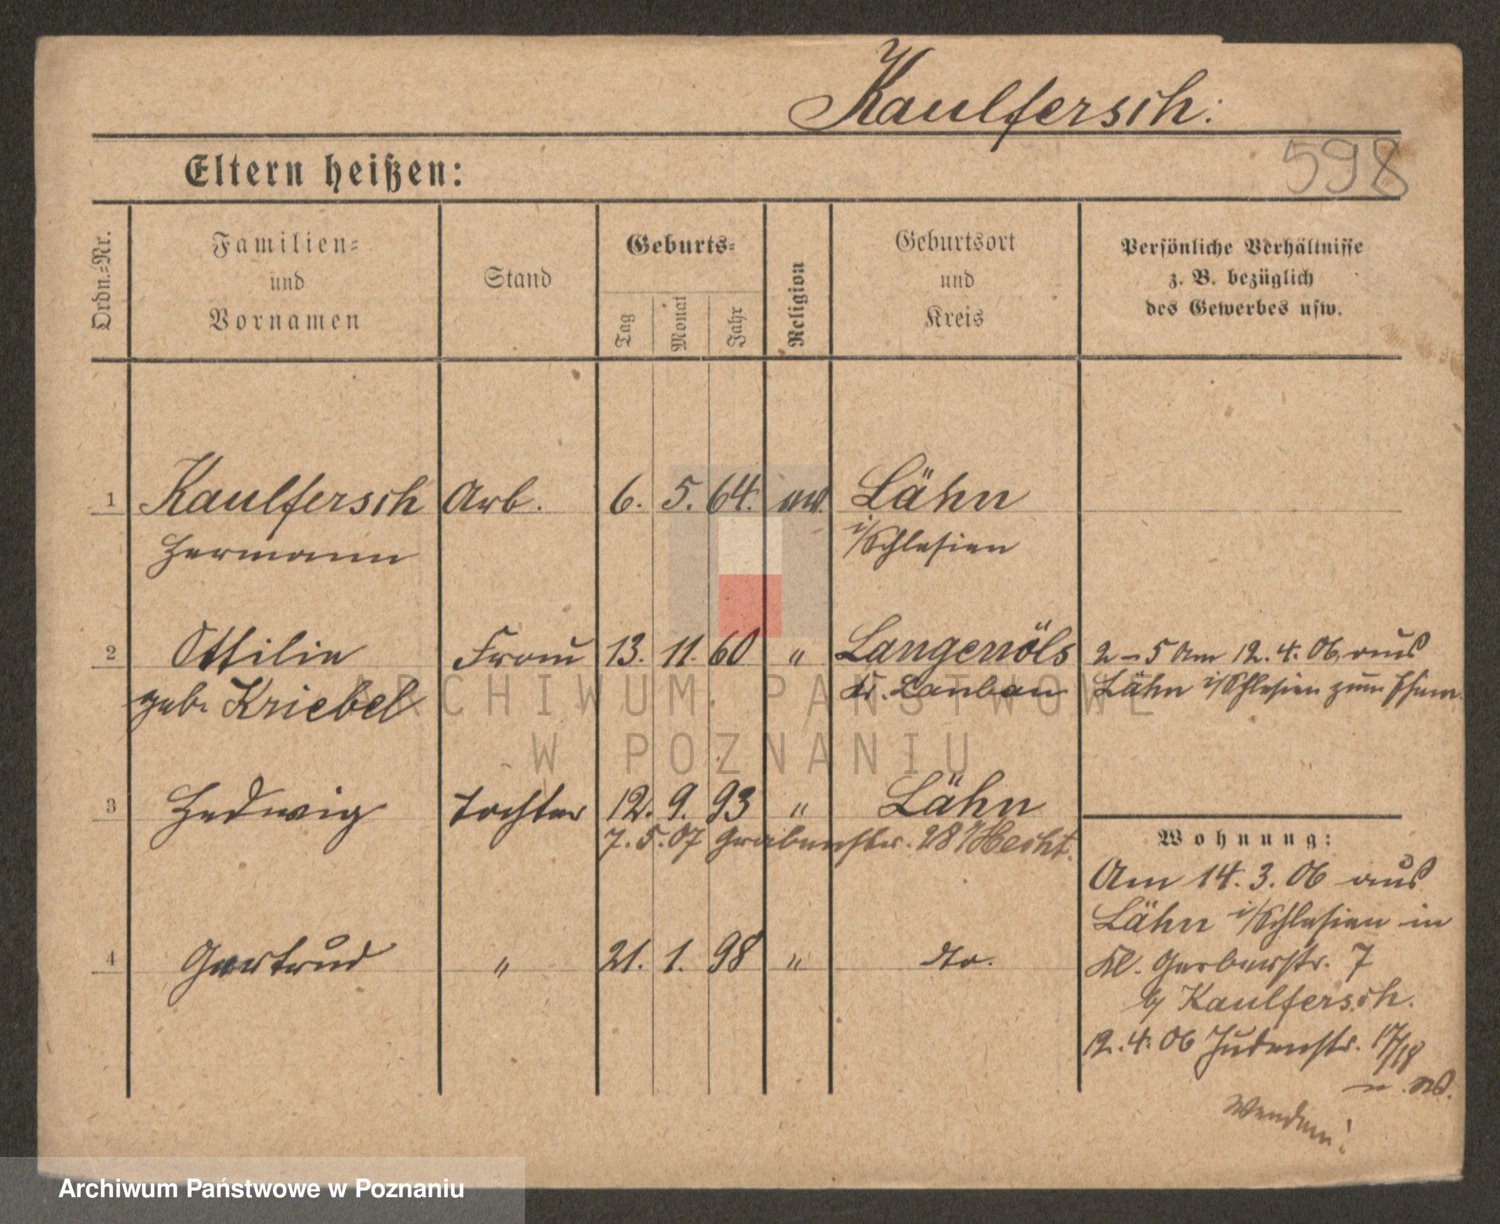 Kaulfersch:
Eltern heißen:
598
Ordn.-Nr.
Familien-
und
Vornamen
Stand
Geburts-
Tag
Monat
Jahr
Religion
Geburtsort
und
Kreis
Persönliche Verhältnisse
z. B. bezüglich
des Gewerbes usw.
1 Kaulfersch Arb. 6. 5. 64. ev. Lähn
Hermann i/Schlesien
2 Ottilie Frau 13. 11. 60 " Langenöls 2-5 Am 12.4.06 aus
geb. Kriebel Kr. Lauban Lähn i/Schlesien zum
3 Hedwig Tochter 12. 9. 93 " Lähn
7.5.07 Grabenstr. 28 b/Hecht.
4 Gertrud " 21. 1. 98 " do.
Wohnung:
Am 14.3.06 aus
Lähn i/Schlesien in
Kl. Gerberstr. 7
b/ Kaulfersch.
12.4.06 Judenstr. 17/18
Wenden!
ARCHIWUM PAŃSTWOWE
W POZNANIU
Archiwum Państwowe w Poznaniu